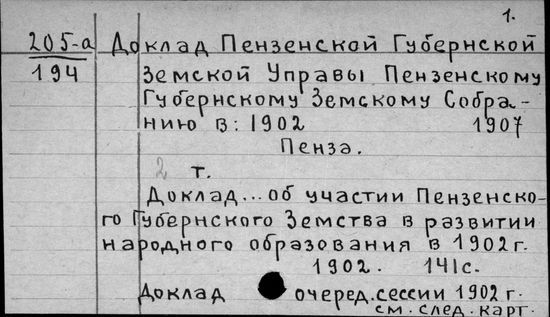 1.
205-а Доклад Пензенской Губернской
194 Земской Управы Пензенскому
Губернскому Земскому Собра-
нию в: 1902 1907
Пенза.
2 т.
Доклад... об участии Пензенско-
го Губернского Земства в развитии
народного образования в 1902 г.
1902. 141 с.
Доклад очеред. сессии 1902 г.
см. след. карт.